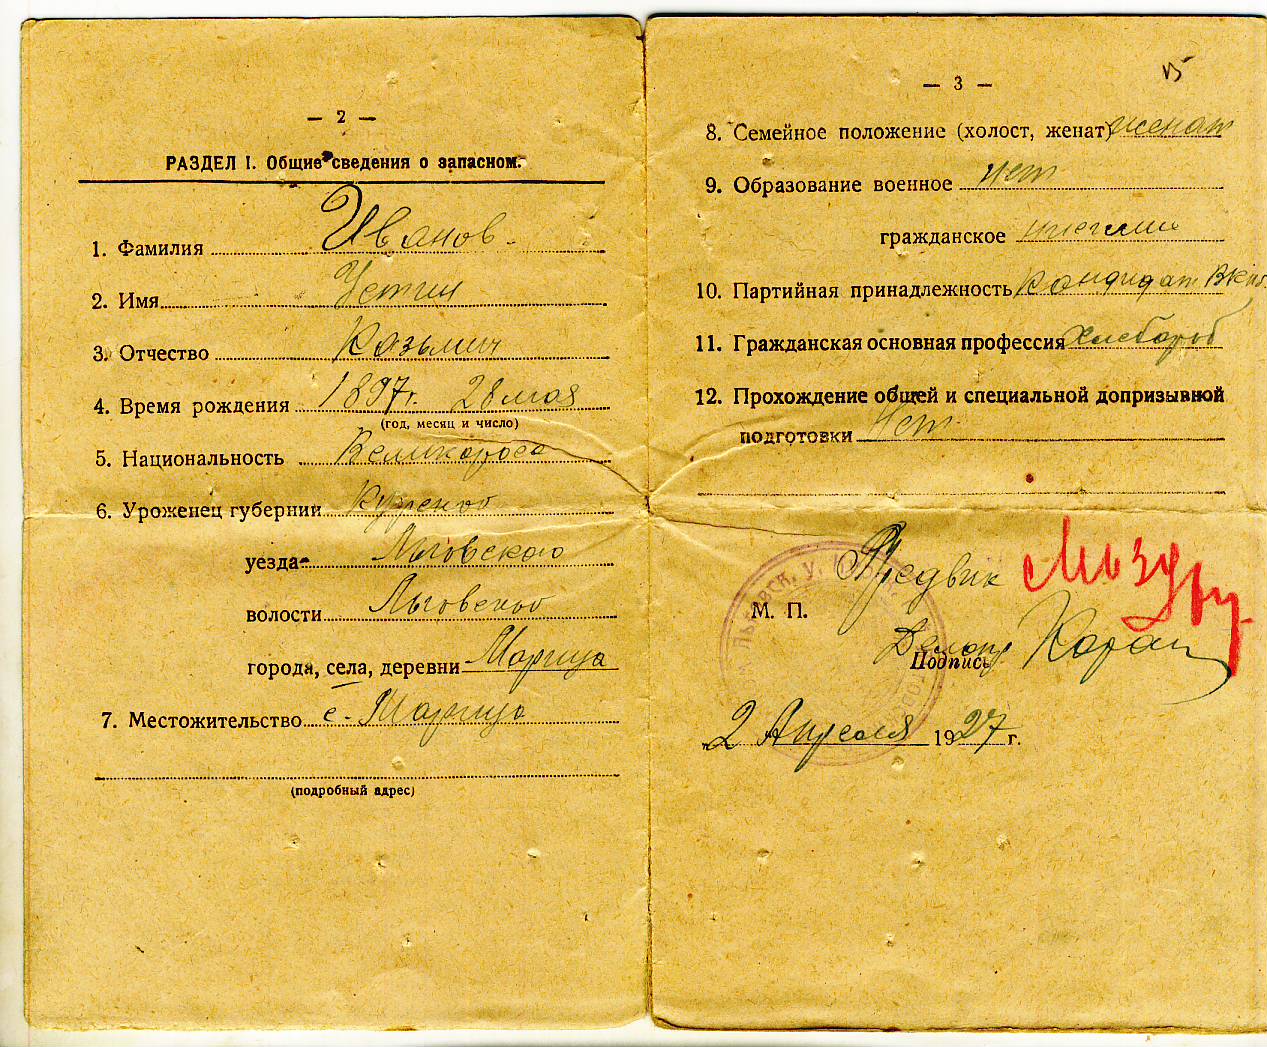 — 2 —
РАЗДЕЛ I. Общие сведения о запасном.
1. Фамилия Иванов
2. Имя Устин
3. Отчество Козьмич
4. Время рождения 1897 г. 28 мая
(год, месяц и число)
5. Национальность Великоросс
6. Уроженец губернии Курской
уезда Льговского
волости Льговской
города, села, деревни Марица
7. Местожительство с. Марица
(подробный адрес)
— 3 —
15
8. Семейное положение (холост, женат) женат
9. Образование военное нет
гражданское
10. Партийная принадлежность Кандидат ВКПб.
11. Гражданская основная профессия хлебороб
12. Прохождение общей и специальной допризывной
подготовки Нет
М. П.
Делопр.
Подпись
2 Апреля 1927 г.